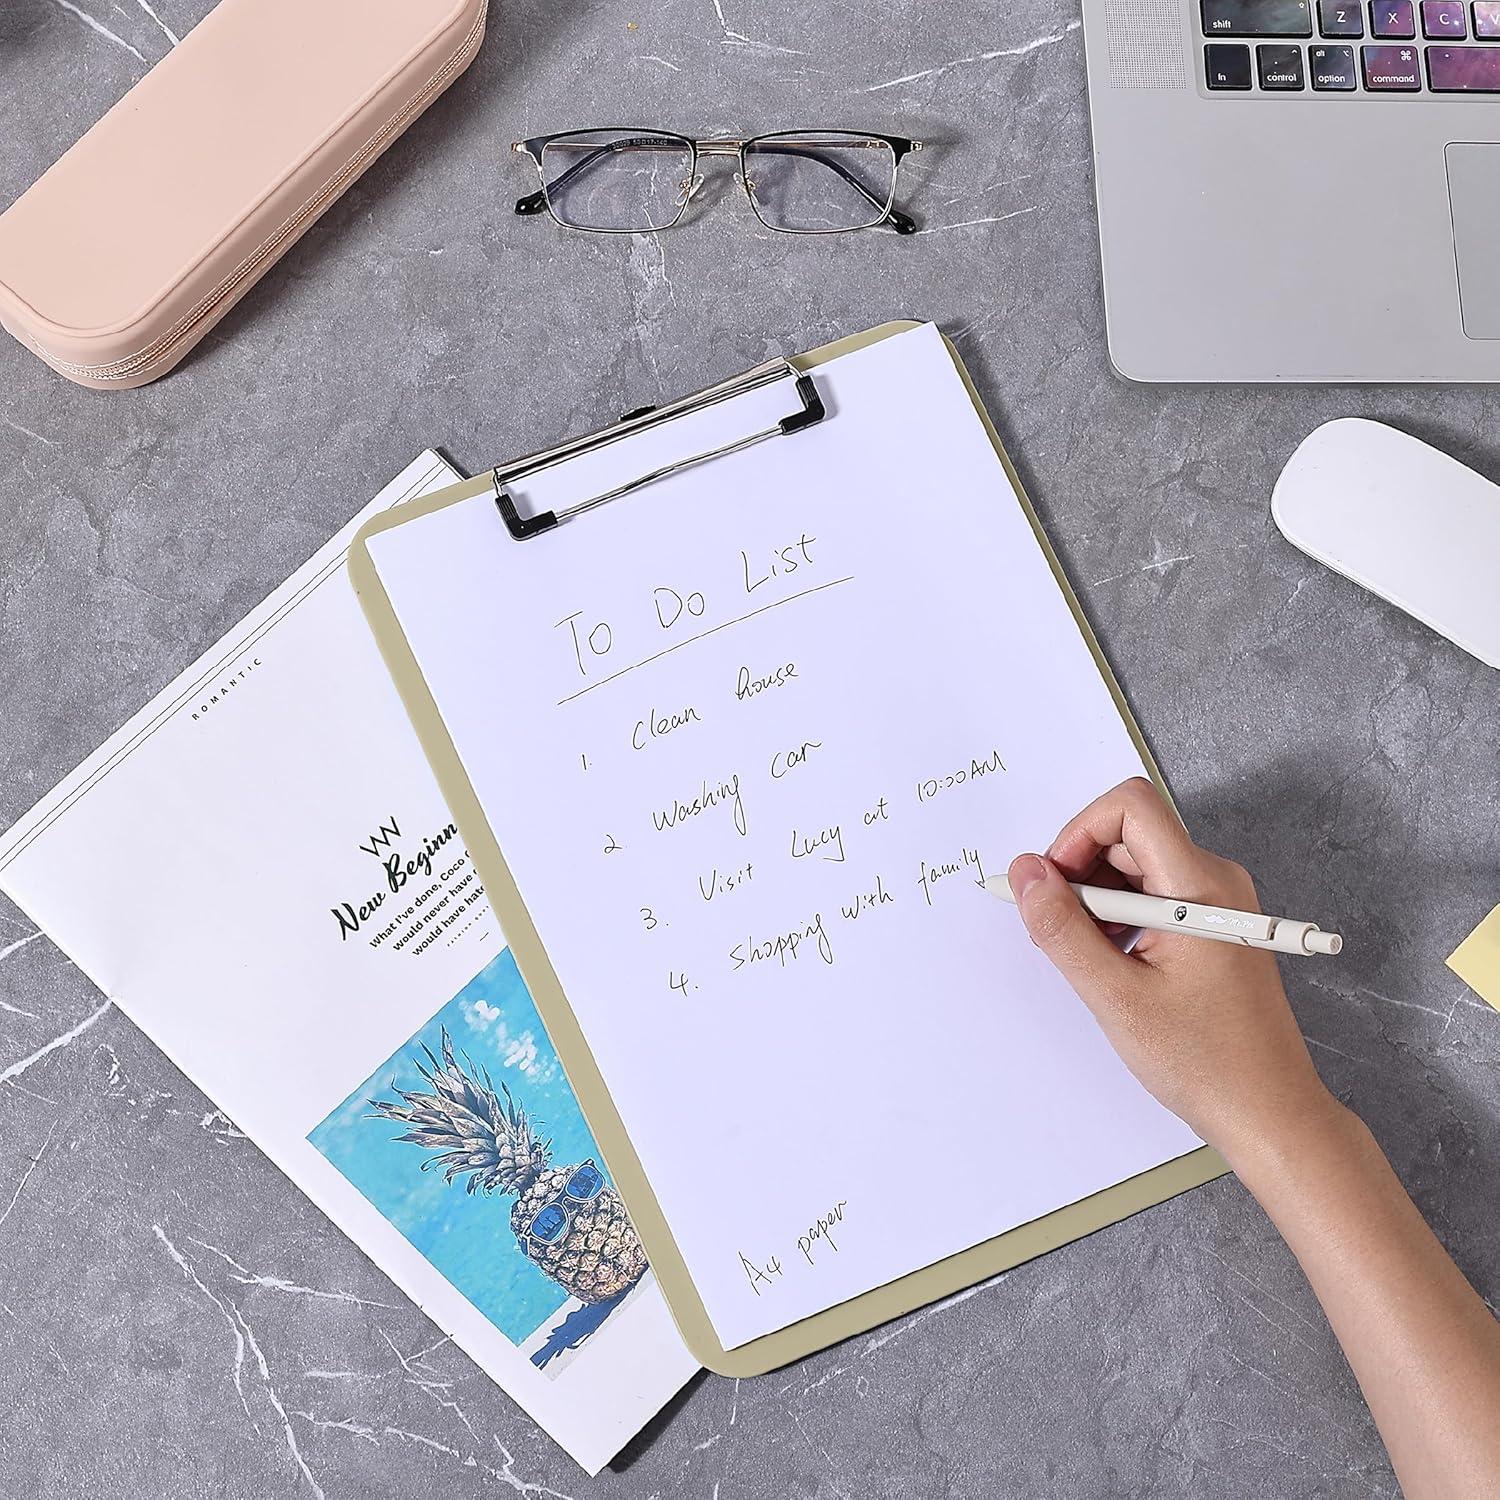 shift Z X C V
fn control alt option ⌘ command
ROMANTIC
New Beginn
What I've done, Coco
would never have
would have hat
To Do List
1. Clean house
2 Washing Car
3. Visit Lucy at 10:00AM
4. Shopping with family
A4 paper